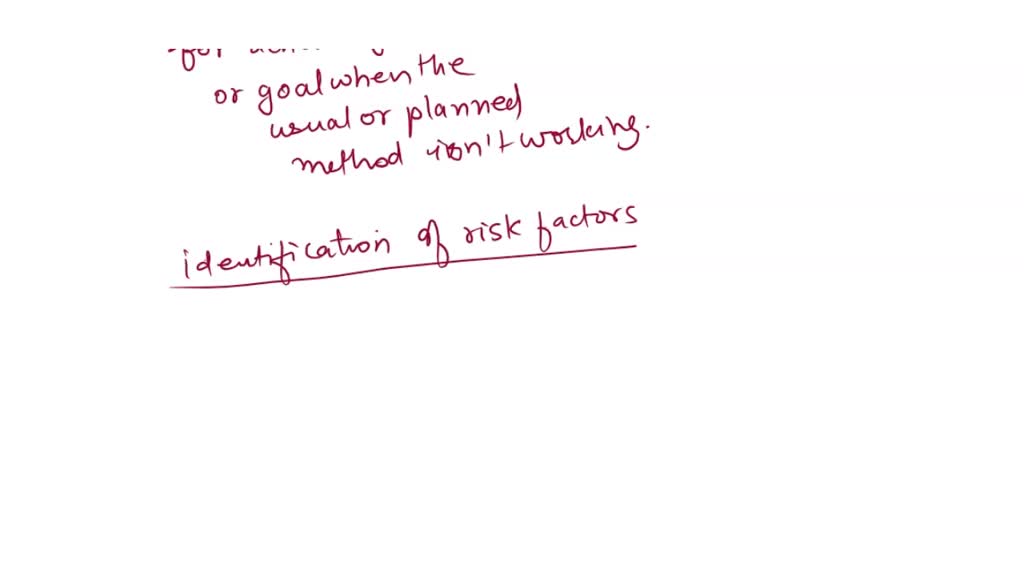 or goal when the
usual or planned
method isn't working.
identification of risk factors